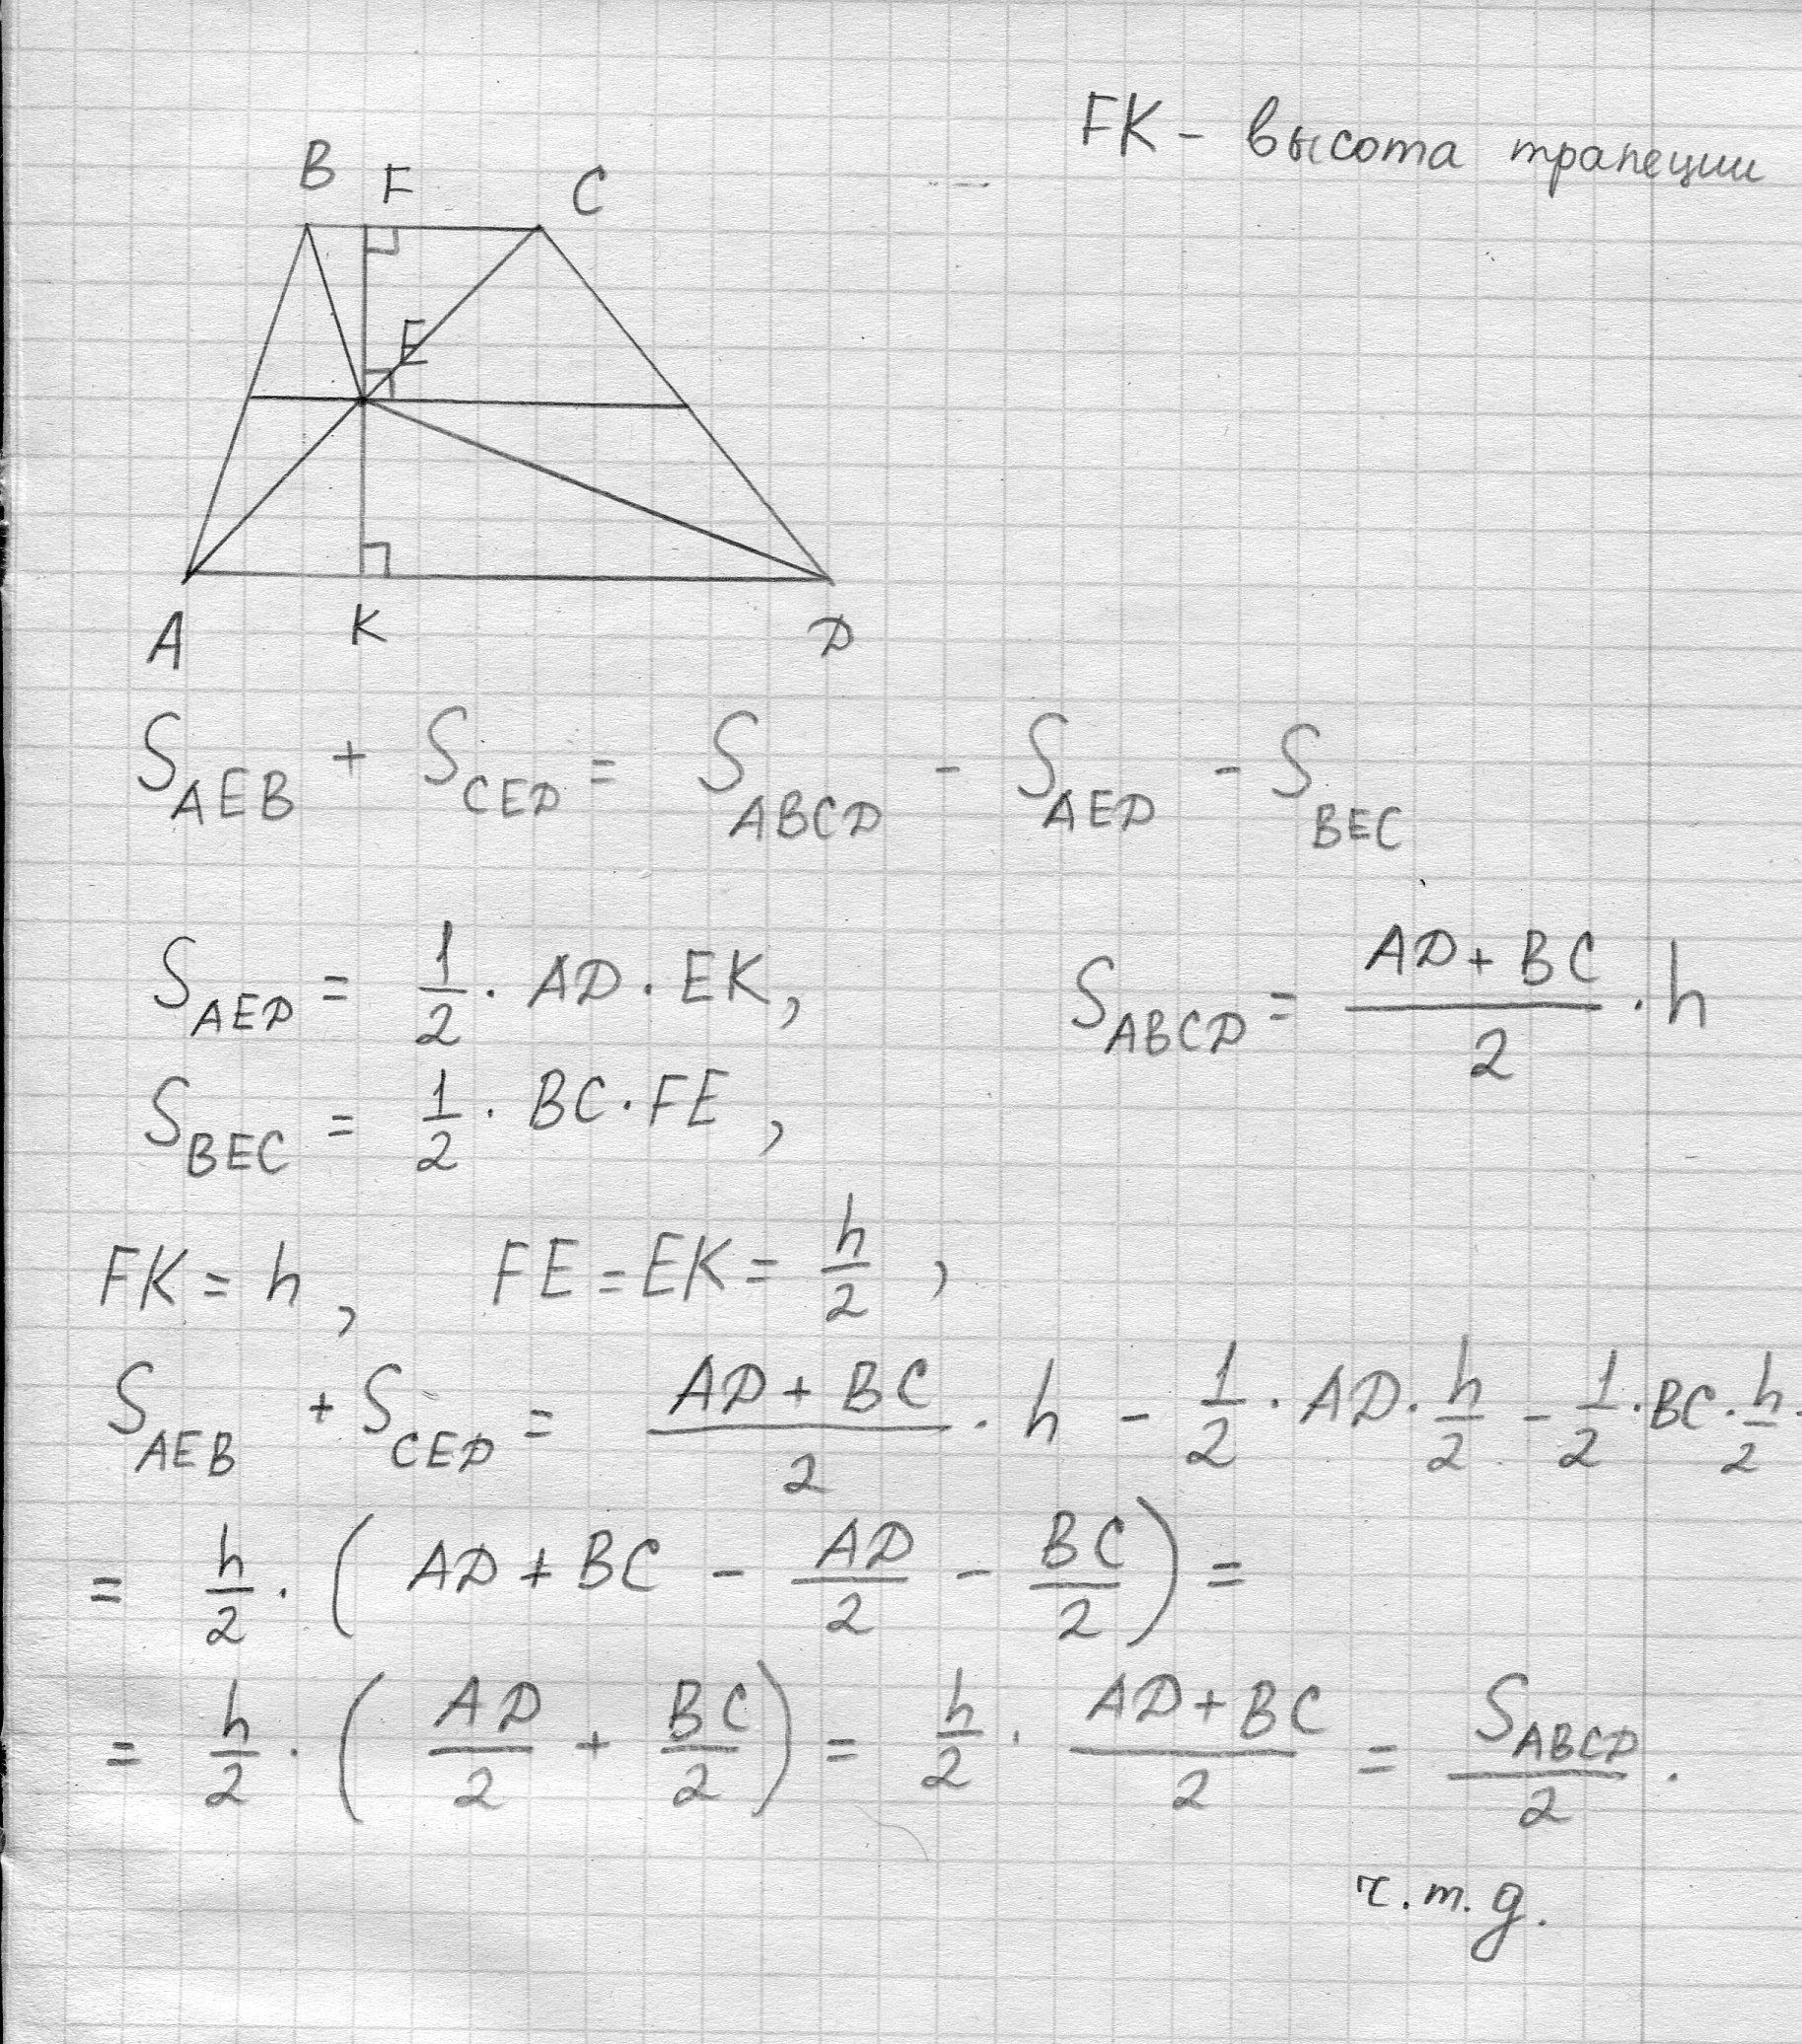 FK - высота трапеции
B F C
E
A K D
S_AEB + S_CED = S_ABCD - S_AED - S_BEC
S_AED = 1/2 · AD · EK, S_ABCD = (AD + BC)/2 · h
S_BEC = 1/2 · BC · FE,
FK = h, FE = EK = h/2,
S_AEB + S_CED = (AD + BC)/2 · h - 1/2 · AD · h/2 - 1/2 · BC · h/2
= h/2 · (AD + BC - AD/2 - BC/2) =
= h/2 · (AD/2 + BC/2) = h/2 · (AD + BC)/2 = S_ABCD/2.
ч.т.д.